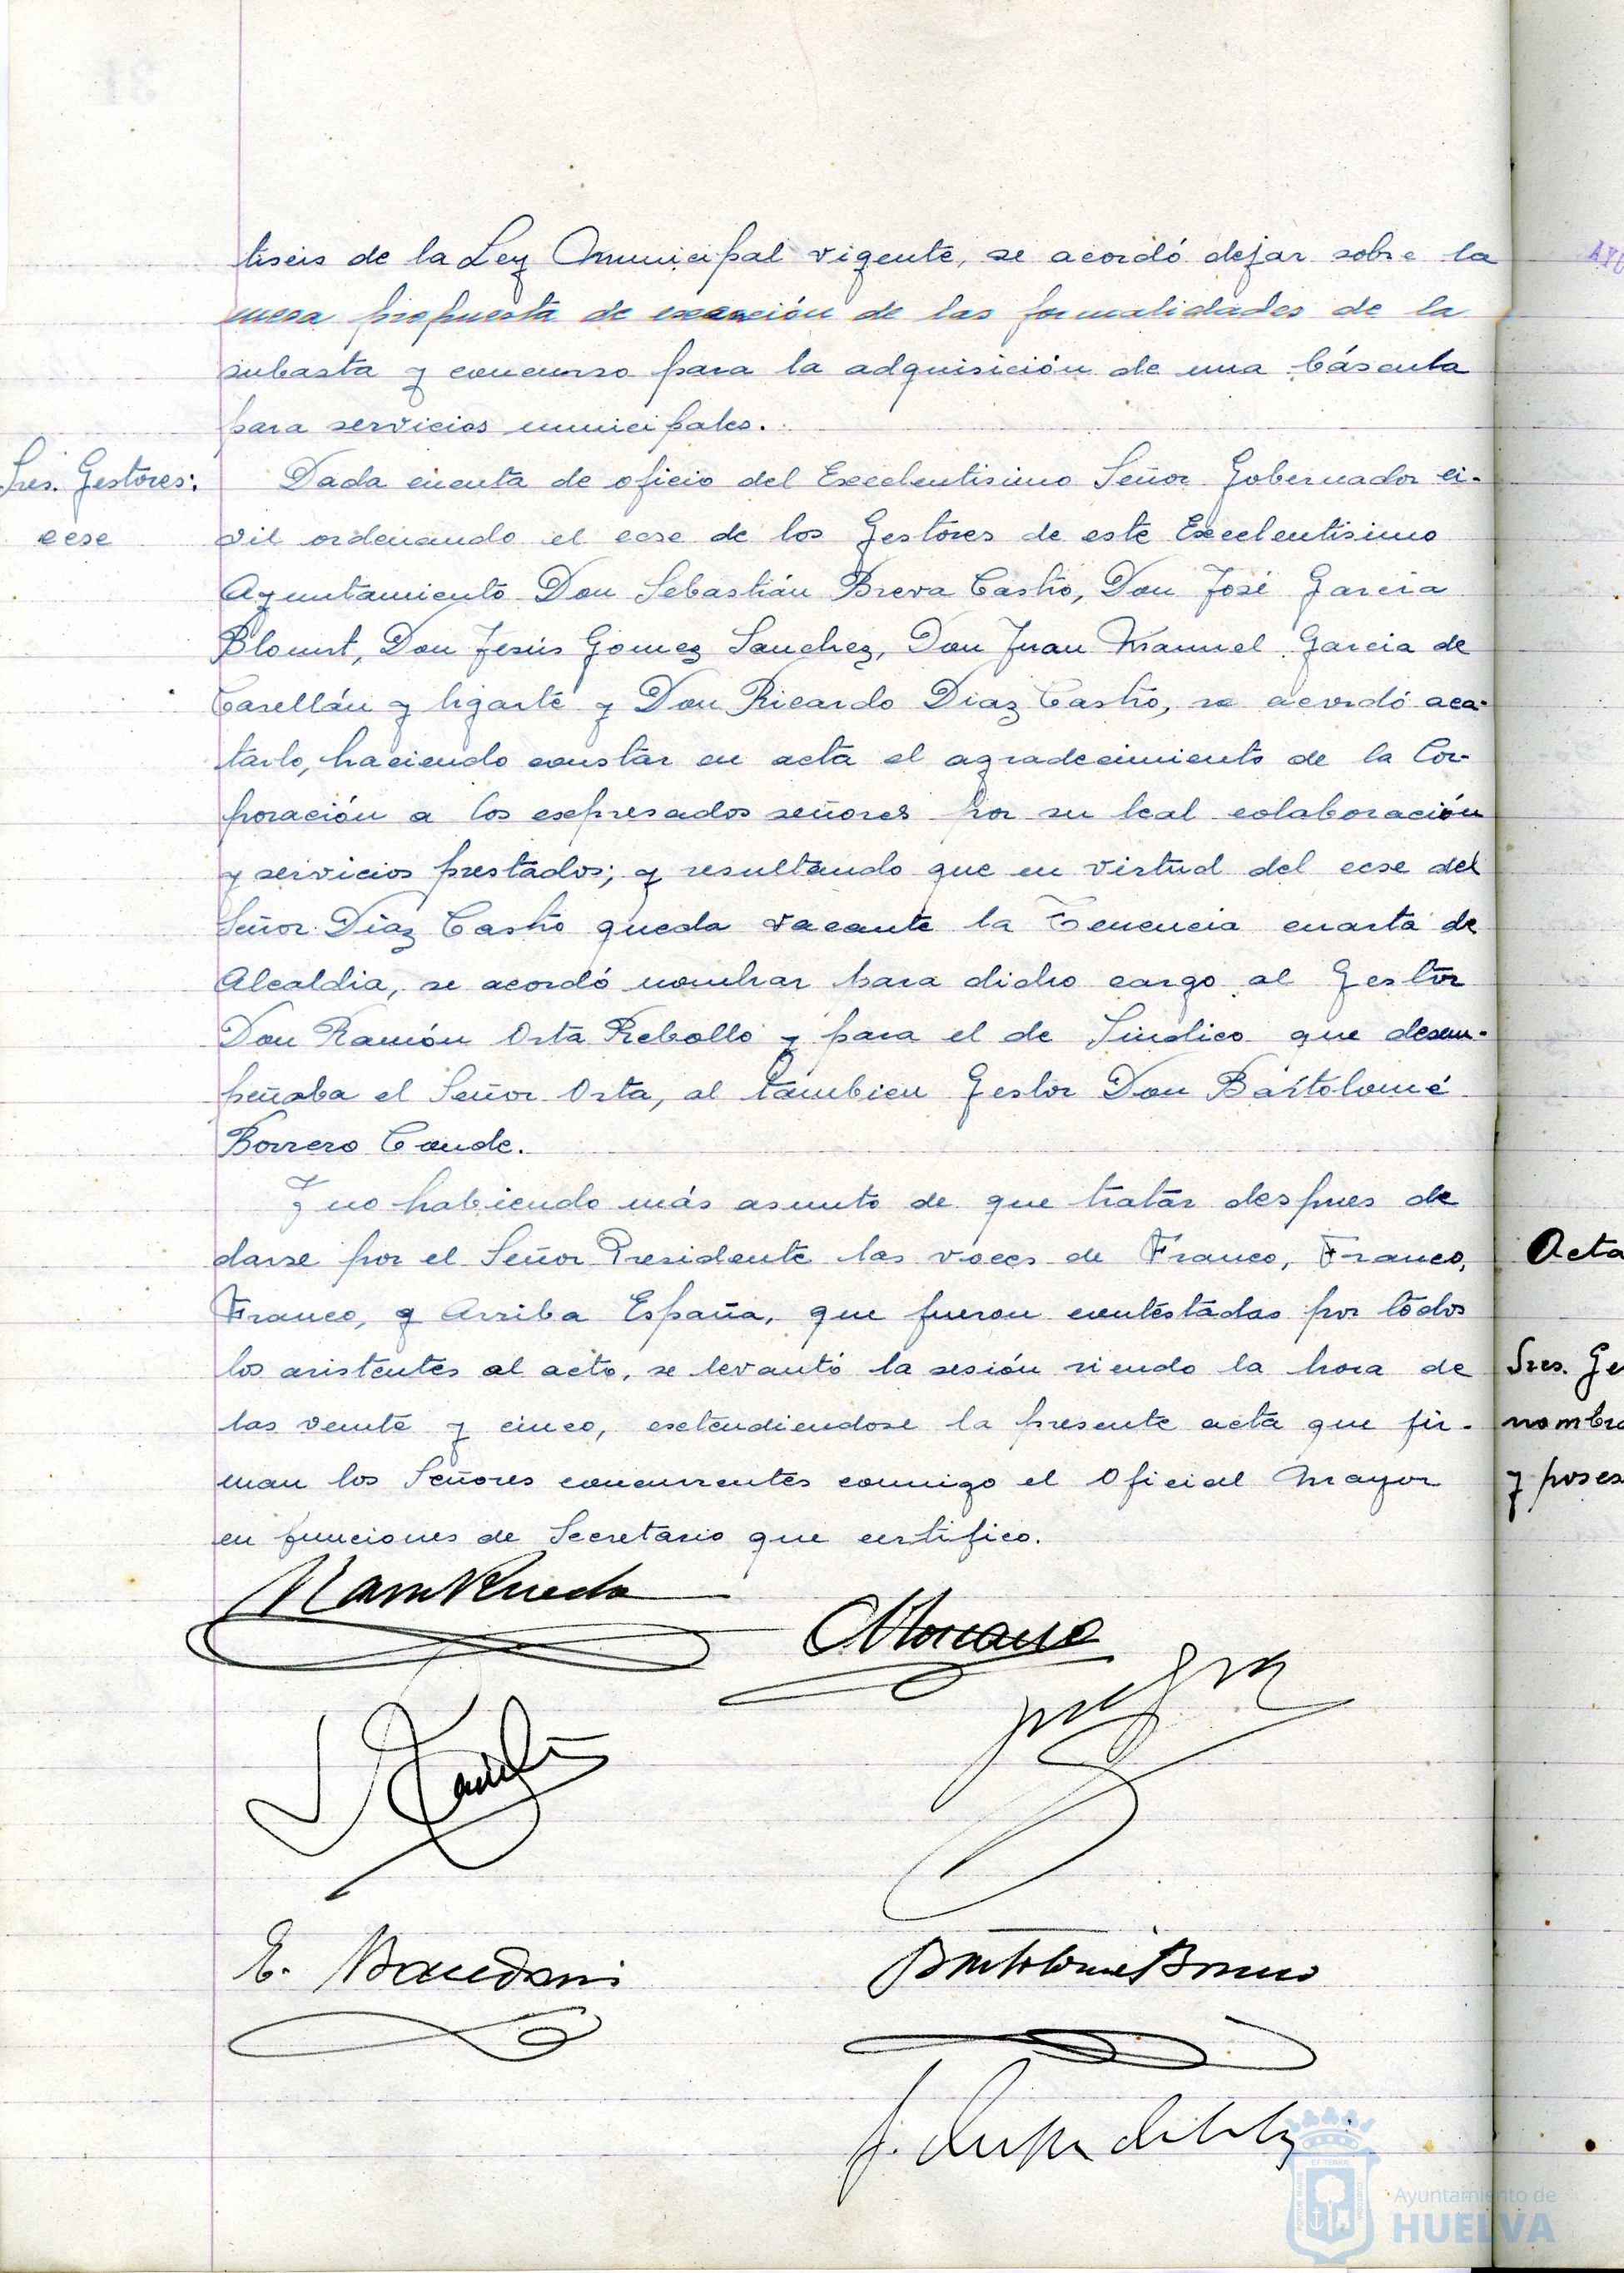 tiseis de la Ley Municipal vigente, se acordó dejar sobre la
mesa propuesta de exención de las formalidades de la
subasta y concurso para la adquisición de una báscula
para servicios municipales.
Sres. Gestores:
cese
Dada cuenta de oficio del Excelentisimo Señor Gobernador ci-
vil ordenando el cese de los Gestores de este Excelentisimo
Ayuntamiento Don Sebastián Breva Castro, Don José Garcia
Blount, Don Jesús Gomez Sanchez, Don Juan Manuel Garcia de
Casellán y Ugarte y Don Ricardo Diaz Castro, se acordó aca-
tarlo, haciendo constar en acta el agradecimiento de la Cor-
poración a los expresados señores por su leal colaboración
y servicios prestados; y resultando que en virtud del cese del
Señor Diaz Castro queda vacante la Tenencia cuarta de
Alcaldia, se acordó nombrar para dicho cargo al Gestor
Don Ramón Orta Rebollo y para el de Sindico que desem-
peñaba el Señor Orta, al tambien Gestor Don Bartolomé
Borrero Conde.
Y no habiendo más asunto de que tratar despues de
darse por el Señor Presidente las voces de Franco, Franco,
Franco, y Arriba España, que fueron contestadas por todos
los asistentes al acto, se levantó la sesión siendo la hora de
las veinte y cinco, extendiendose la presente acta que fir-
man los Señores concurrentes conmigo el Oficial Mayor
en funciones de Secretario que certifico.
Acta
Sres. Ge
nombra
y poses
Bartolomé Borrero
Ayuntamiento de
HUELVA